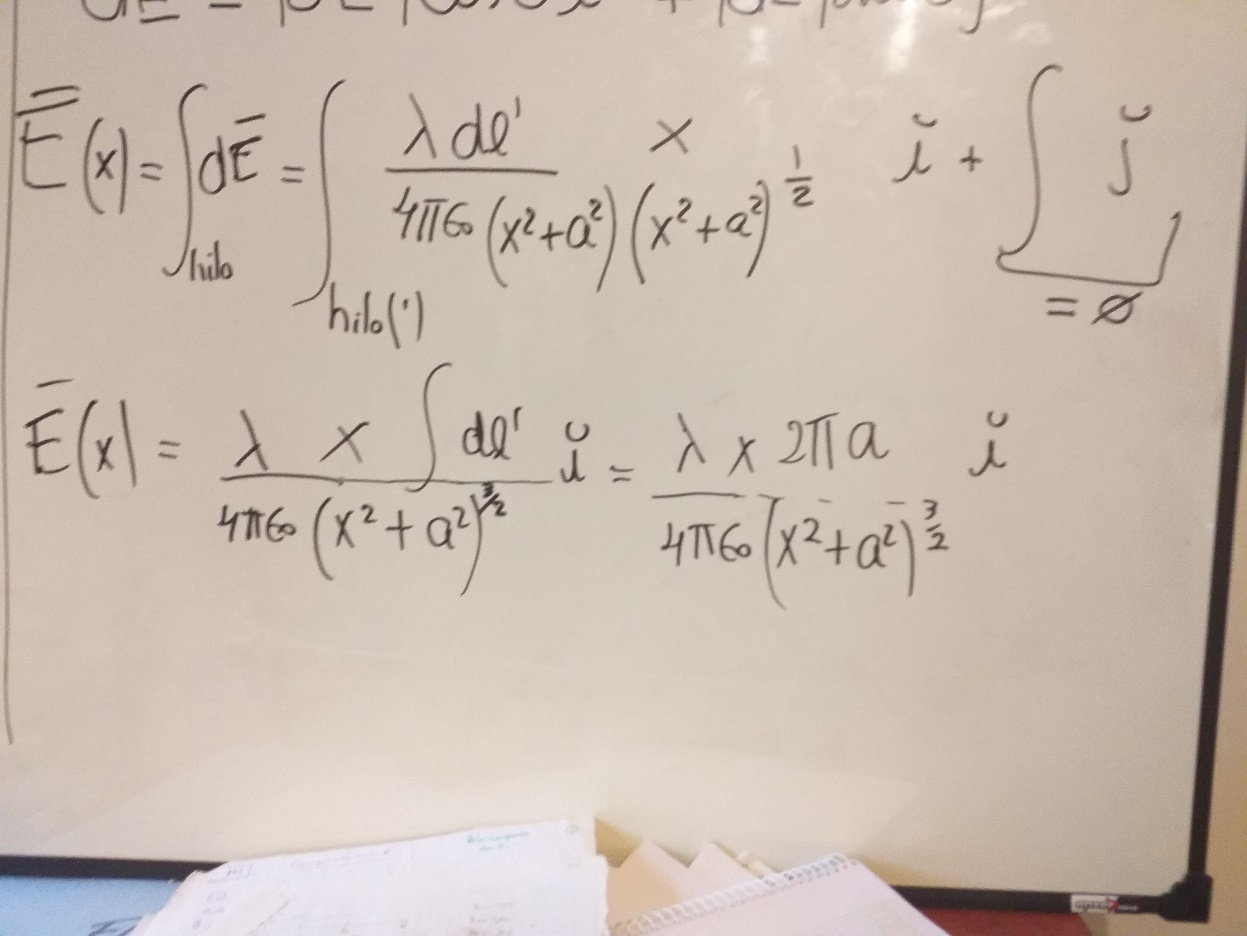 Ē(x) = ∫hilo dĒ = ∫hilo(') λ dl' / 4π€₀ (x²+a²) x / (x²+a²)^½ ĭ + ∫ j̆
= ∅
Ē(x) = λ x ∫ dl' / 4π€₀ (x²+a²)^3/2 ĭ = λ x 2π a / 4π€₀ (x²+a²)^3/2 ĭ